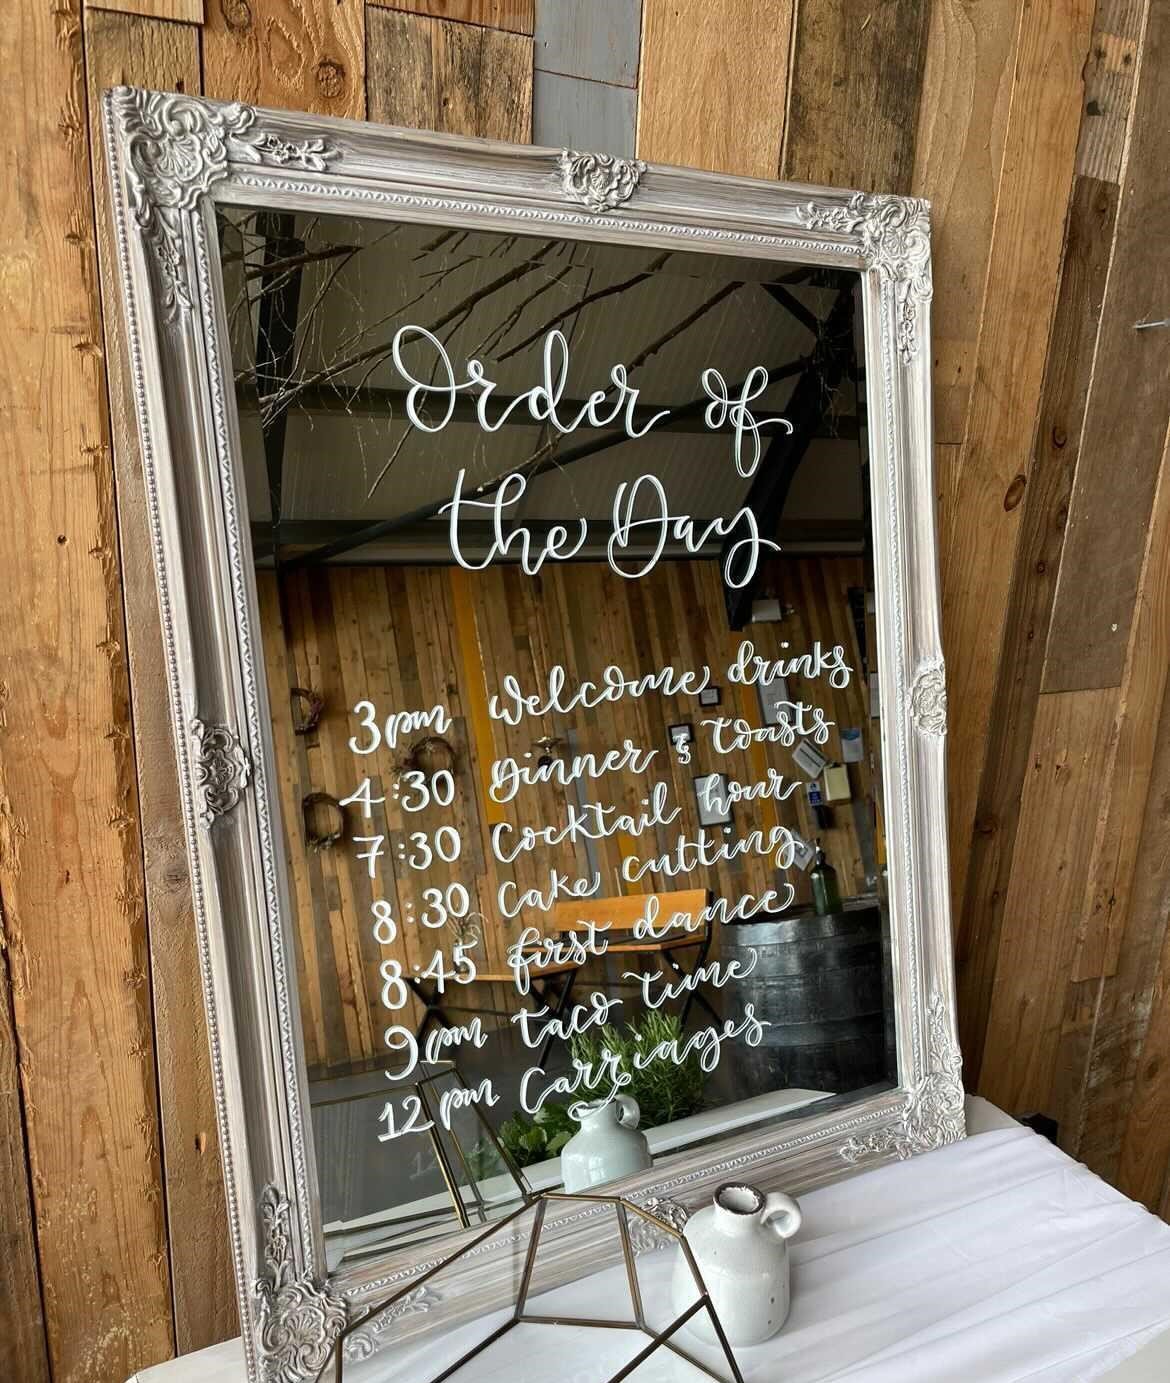 Order of
the Day
3pm Welcome drinks
4:30 Dinner & toasts
7:30 Cocktail hour
8:30 Cake cutting
8:45 first dance
9pm taco time
12pm Carriages